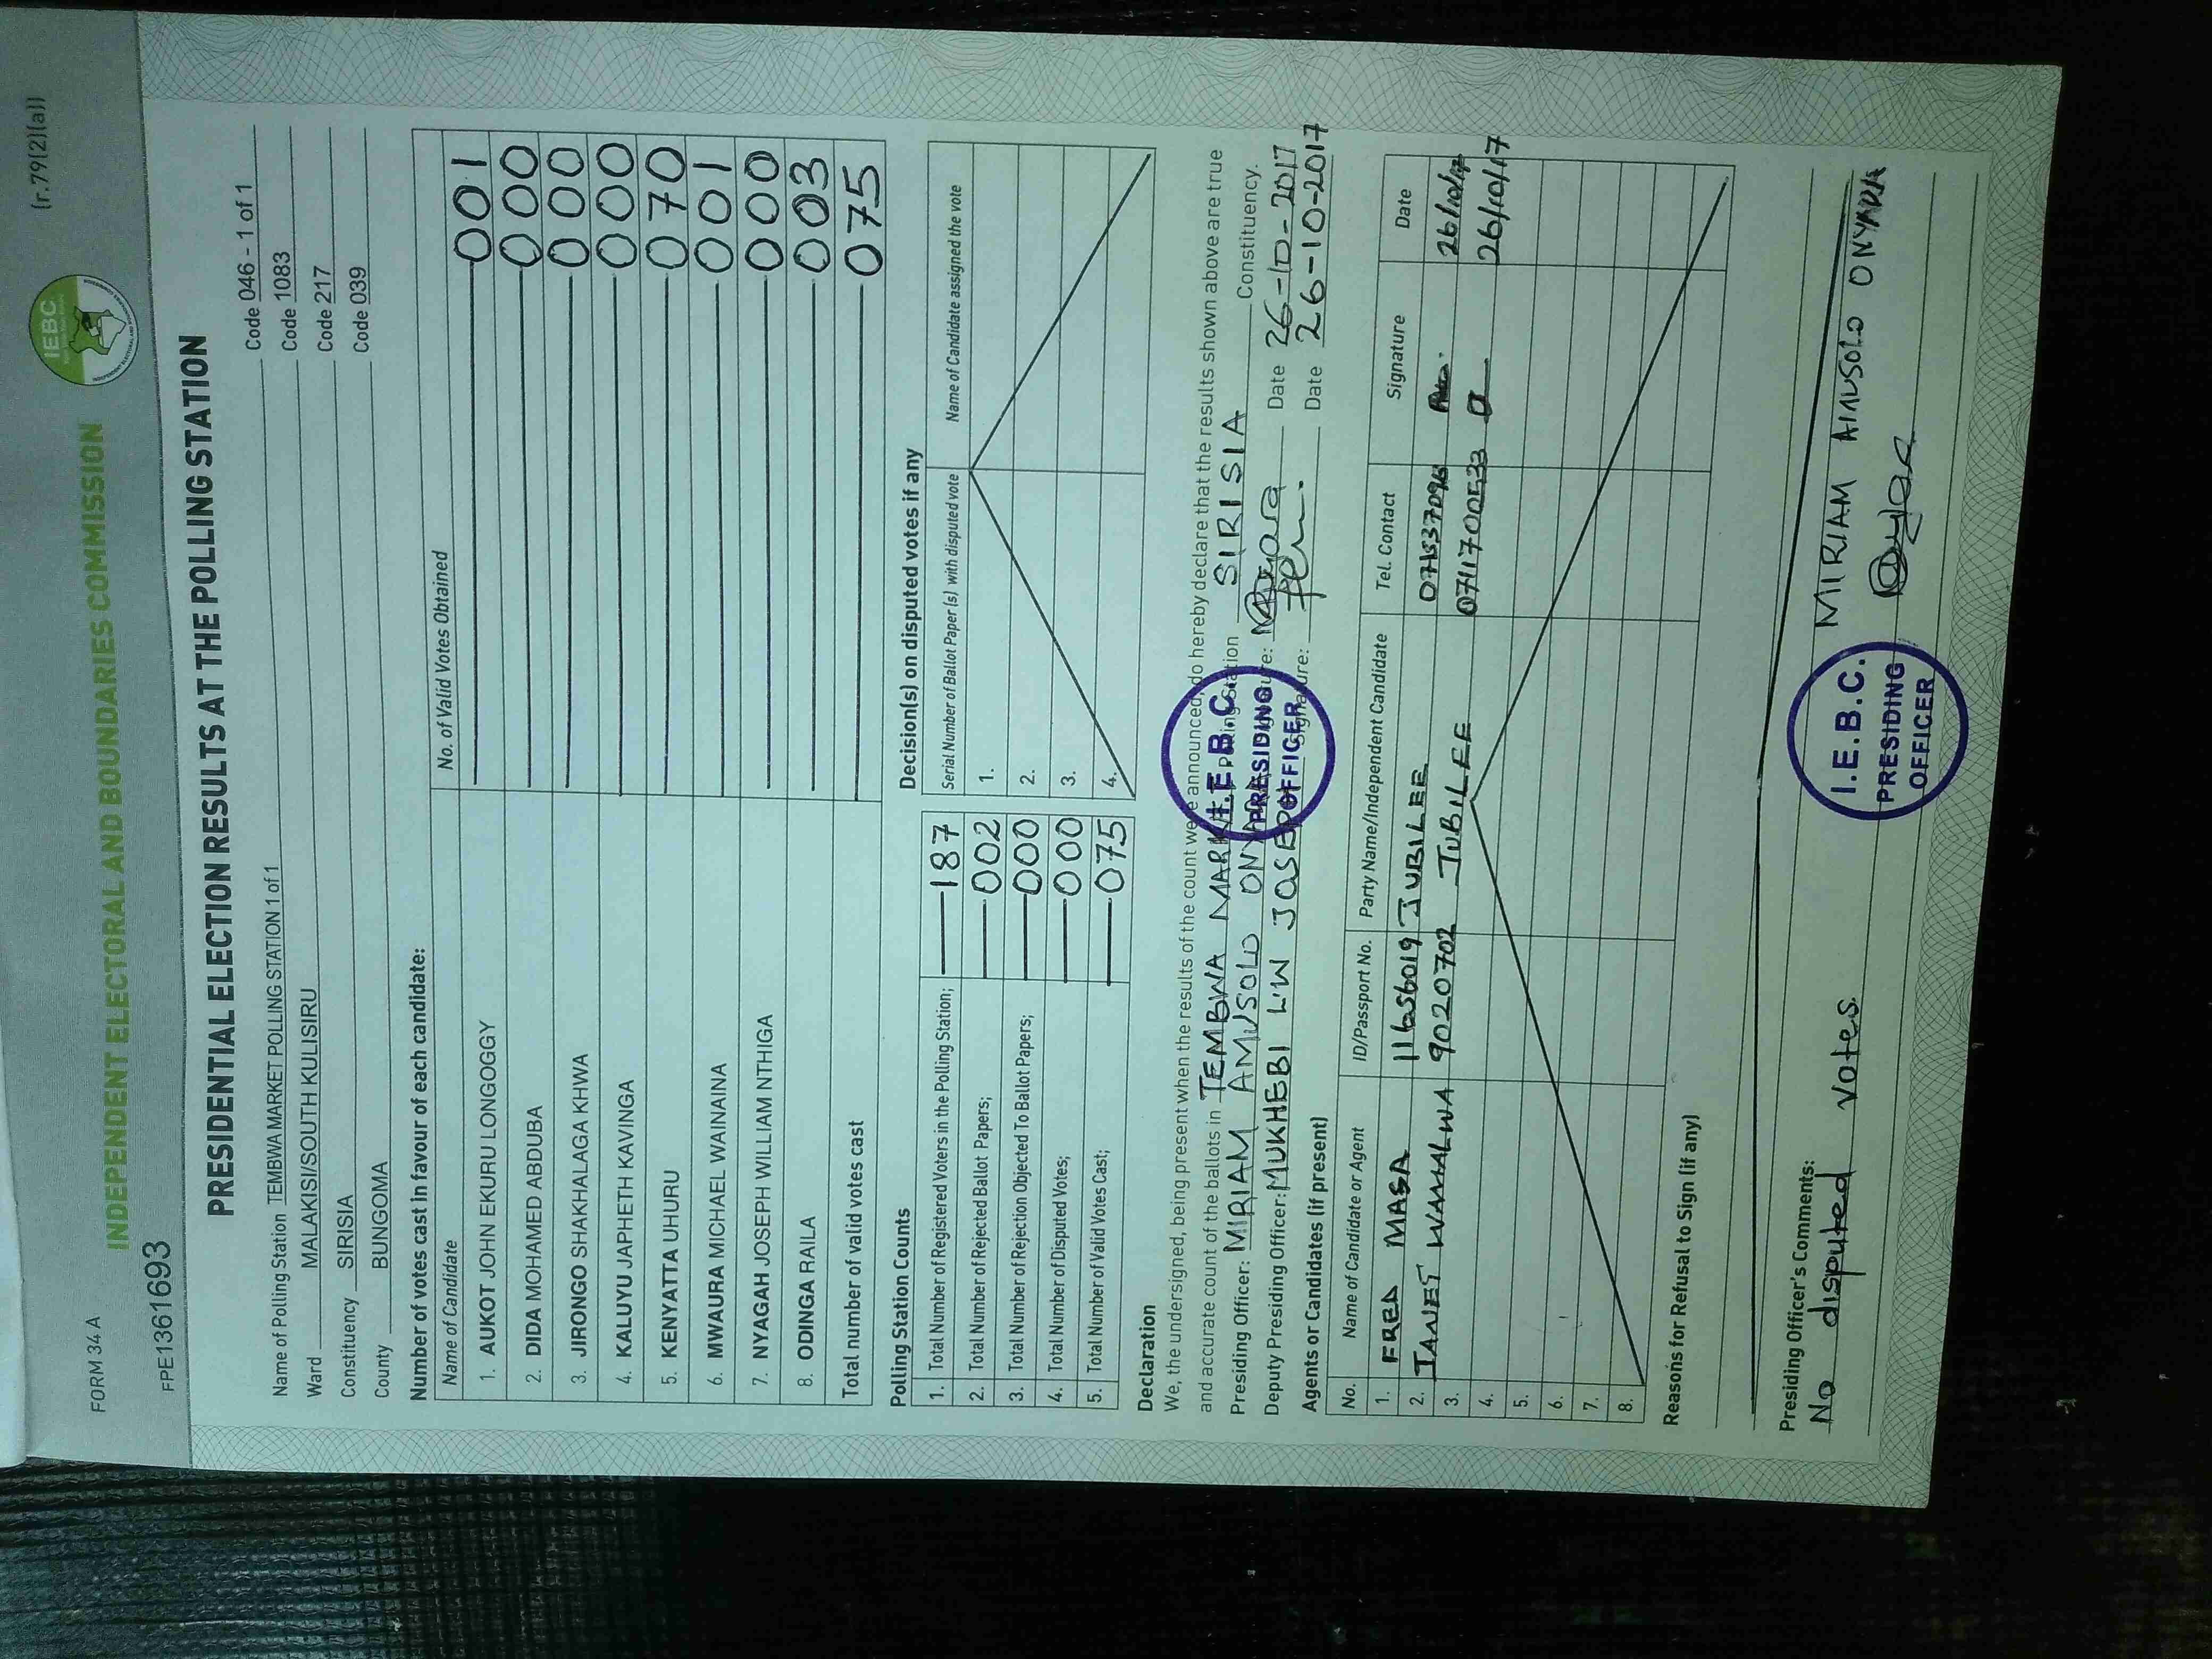 FORM 34 A
(r.79(2)(a))
IEBC
INDEPENDENT ELECTORAL AND BOUNDARIES COMMISSION
FPE1361693
PRESIDENTIAL ELECTION RESULTS AT THE POLLING STATION
Name of Polling Station TEMBWA MARKET POLLING STATION 1 of 1 Code 046 - 1 of 1
Ward MALAKISI/SOUTH KULISIRU Code 1083
Constituency SIRISIA Code 217
County BUNGOMA Code 039
Number of votes cast in favour of each candidate:
Name of Candidate No. of Valid Votes Obtained
1. AUKOT JOHN EKURU LONGOGGY 001
2. DIDA MOHAMED ABDUBA 000
3. JIRONGO SHAKHALAGA KHWA 000
4. KALUYU JAPHETH KAVINGA 000
5. KENYATTA UHURU 070
6. MWAURA MICHAEL WAINAINA 001
7. NYAGAH JOSEPH WILLIAM NTHIGA 000
8. ODINGA RAILA 003
Total number of valid votes cast 075
Polling Station Counts
1. Total Number of Registered Voters in the Polling Station; 187
2. Total Number of Rejected Ballot Papers; 002
3. Total Number of Rejection Objected To Ballot Papers; 000
4. Total Number of Disputed Votes; 000
5. Total Number of Valid Votes Cast; 075
Decision(s) on disputed votes if any
Serial Number of Ballot Paper (s) with disputed vote Name of Candidate assigned the vote
1.
2.
3.
4.
Declaration
We, the undersigned, being present when the results of the count were announced, do hereby declare that the results shown above are true
and accurate count of the ballots in TEMBWA MARKET Polling Station SIRISIA Constituency.
Presiding Officer: MIRIAM AMUSOLO Signature: Date 26-10-2017
Deputy Presiding Officer: MUKHEBI JOSEPH Signature: Date 26-10-2017
I.E.B.C.
PRESIDING
OFFICER
Agents or Candidates (if present)
No. Name of Candidate or Agent ID/Passport No. Party Name/Independent Candidate Tel. Contact Signature Date
1. FRED MASA 11656019 JUBILEE 26/10/17
2. JANET WAMALWA 9020702 JUBILEE 0711700533 26/10/17
3.
4.
5.
6.
7.
8.
Reasons for Refusal to Sign (if any)
Presiding Officer's Comments:
No disputed votes. MIRIAM AMUSOLO ONYARA
I.E.B.C.
PRESIDING
OFFICER